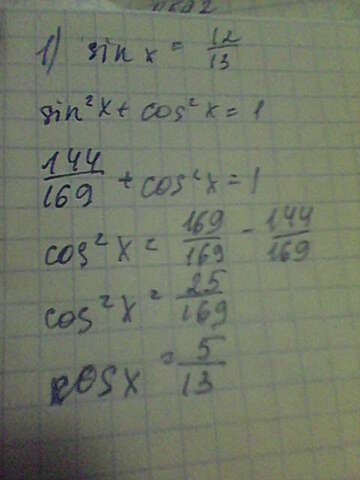 1) sin x = 12/13
sin²x + cos²x = 1
144/169 + cos²x = 1
cos²x = 169/169 - 144/169
cos²x = 25/169
cos x = 5/13